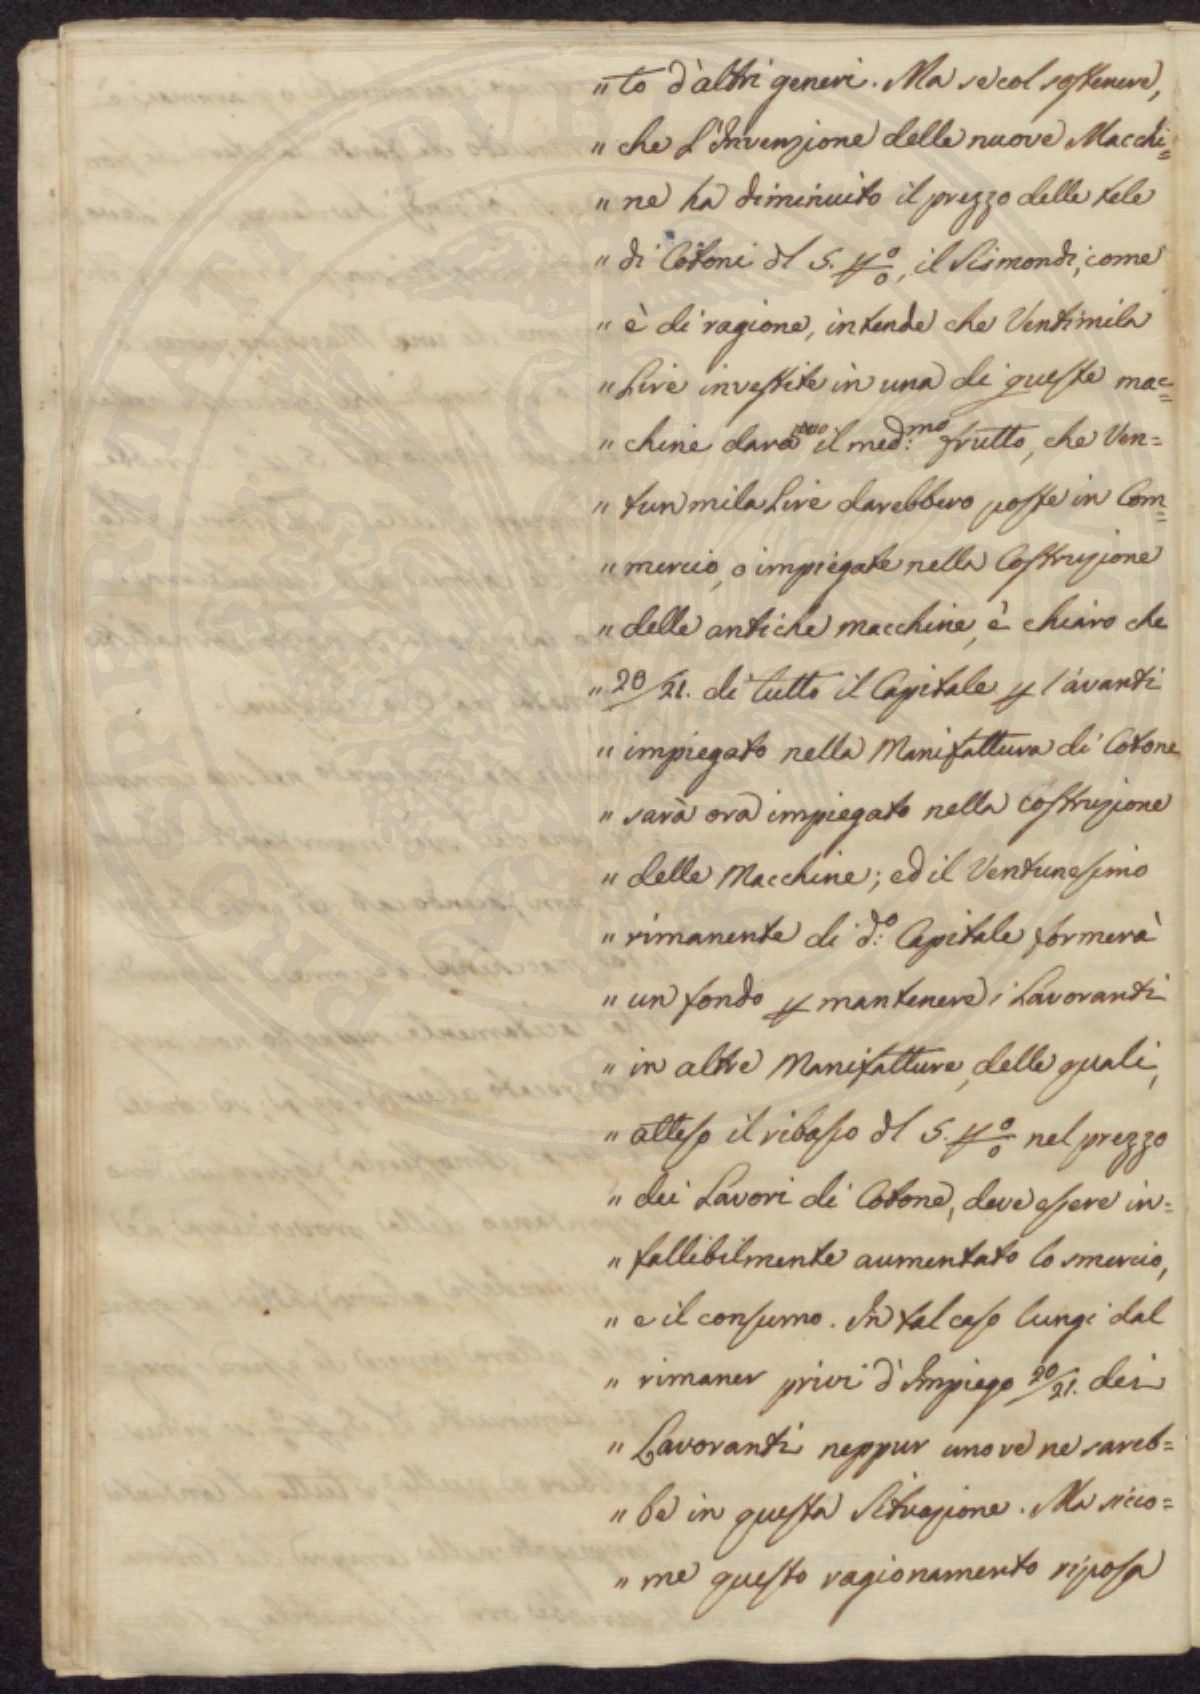 " to d'altri generi. Ma se col sostenere,
" che l'Invenzione delle nuove Macchi=
" ne ha diminuito il prezzo delle tele
" di Cotoni dl 5. p% , il Sismondi, come
" è di ragione, intende che Ventimila
" Lire investite in una di queste mac=
" chine dara il med:mo frutto, che Ven=
" tun mila Lire darebbero poste in Com=
" mercio, o impiegate nella Costruzione
" delle antiche macchine, è chiaro che
" 20/21. di tutto il Capitale p l'avanti
" impiegato nella Manifattura di Cotone
" sarà ora impiegato nella costruzione
" delle Macchine; ed il Ventunesimo
" rimanente di d:o Capitale formerà
" un fondo p mantenere i Lavoranti
" in altre Manifatture, delle quali,
" atteso il ribasso dl 5. p% nel prezzo
" dei Lavori di Cotone, deve essere in=
" fallibilmente aumentato lo smercio,
" e il consumo. In tal caso lungi dal
" rimaner privi d'Impiego 20/21. dei
" Lavoranti neppur uno ve ne sareb=
" be in questa Situazione. Ma sicco=
" me questo ragionamento riposa